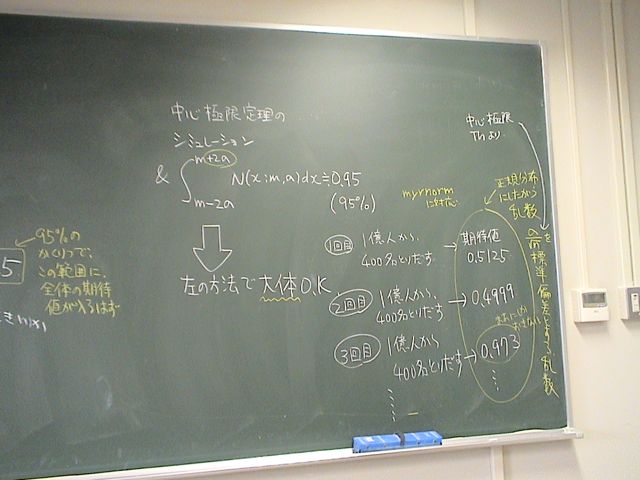 中心極限定理の
シミュレーション
& ∫ m+2a
N(x:m,a)dx≒0.95
m-2a
(95%)
左の方法で大体O.K.
95%の
かくりつで、
この範囲に、
全体の期待
値が入るはず
5
中心極限
Thより
正規分布
にしたがう
乱数
myrnorm
に対応
1回目
1億人から、
400名とりだす
→ 期待値
0.5125
2回目
1億人から、
400名とりだす
→ 0.4999
3回目
1億人から
400名とりだす
→ 0.973
を標準偏差とする乱数